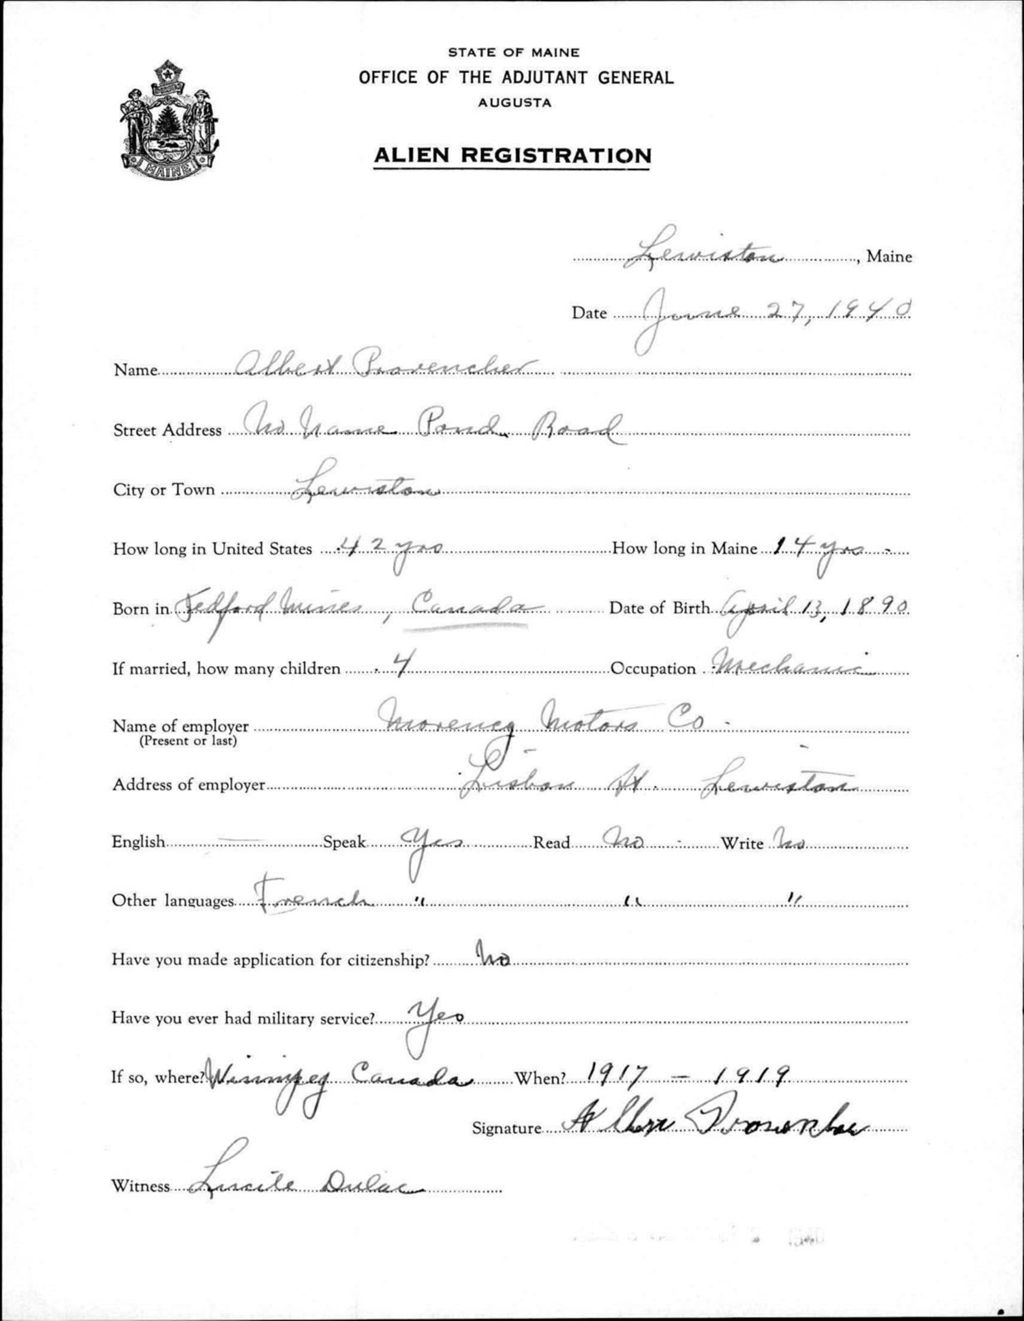 STATE OF MAINE
OFFICE OF THE ADJUTANT GENERAL
AUGUSTA
ALIEN REGISTRATION
MAINE
Lewiston, Maine
Date June 27, 1940
Name Albert Provencher
Street Address No Name Pond Road
City or Town Lewiston
How long in United States 42 yrs How long in Maine 14 yrs
Born in Tedford Mines, Canada Date of Birth April 13, 1890
If married, how many children 4 Occupation Mechanic
Name of employer Morency Motors Co.
(Present or last)
Address of employer Lisbon St. Lewiston
English — Speak Yes Read No Write No
Other languages French " " "
Have you made application for citizenship? No
Have you ever had military service? Yes
If so, where? Winnipeg Canada When? 1917 – 1919
Signature Albert
Witness Lucile Dulac